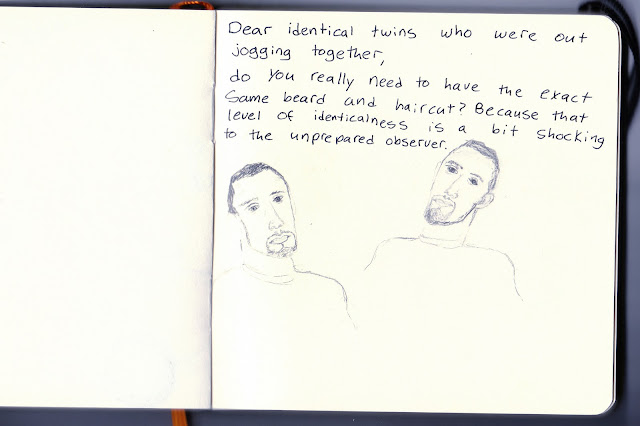 Dear identical twins who were out
jogging together,
do you really need to have the exact
same beard and haircut? Because that
level of identicalness is a bit shocking
to the unprepared observer.